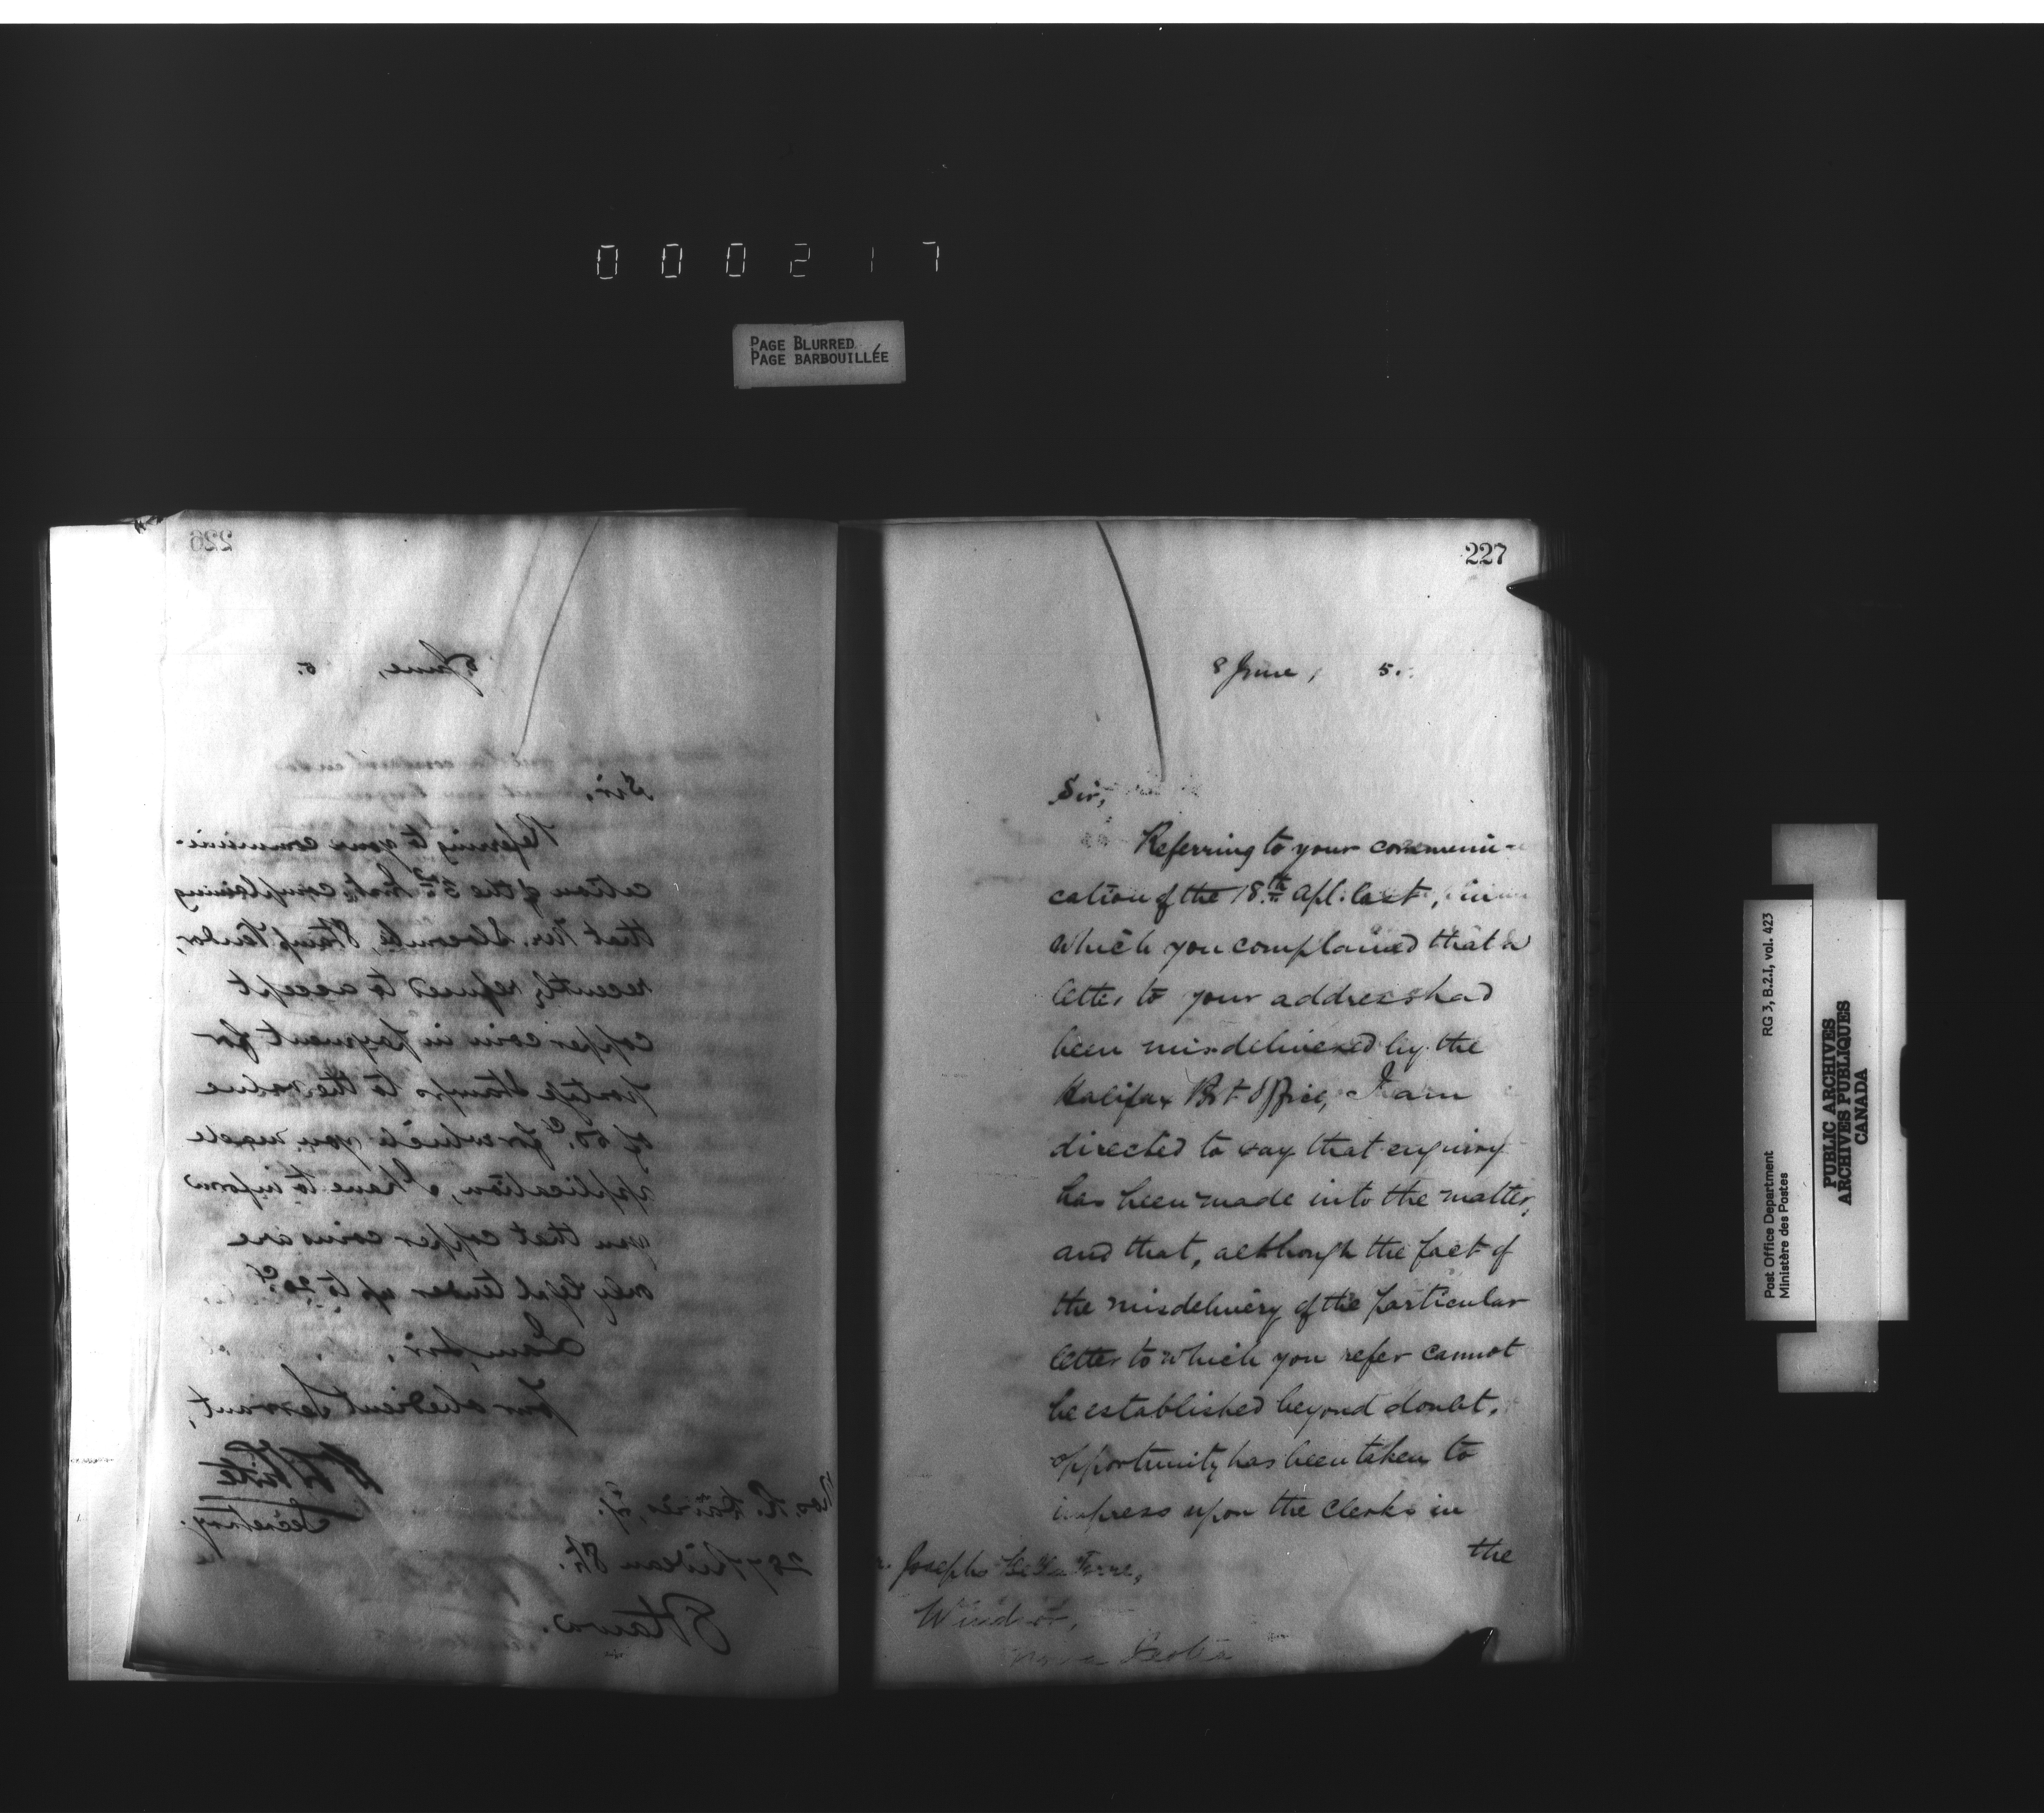 000217
PAGE BLURRED
PAGE BARBOUILLÉE
226
8 June, 5.
Sir,
Referring to your communi-
cation of the 3rd Inst. complaining
that Mr. Slocombe, Stamp Vendor,
recently refused to accept
copper coin in payment for
postage stamps to the value
of 50c. for which you made
application, I have to inform
you that copper coins are
only legal tender up to 20c.
I am, Sir,
Your obedient Servant,
White
Secretary.
257 Rideau St.
Ottawa.
227
8 June, 5.
Sir,
Referring to your communi-
cation of the 18th Apl: last, in
which you complained that a
letter to your address had
been misdelivered by the
Halifax Post Office, I am
directed to say that enquiry
has been made into the matter,
and that, although the fact of
the misdelivery of the particular
letter to which you refer cannot
be established beyond doubt,
opportunity has been taken to
impress upon the Clerks in
the
Joseph
Windsor,
Nova Scotia
Post Office Department
Ministère des Postes
RG 3, B.2.I, vol. 423
PUBLIC ARCHIVES
ARCHIVES PUBLIQUES
CANADA